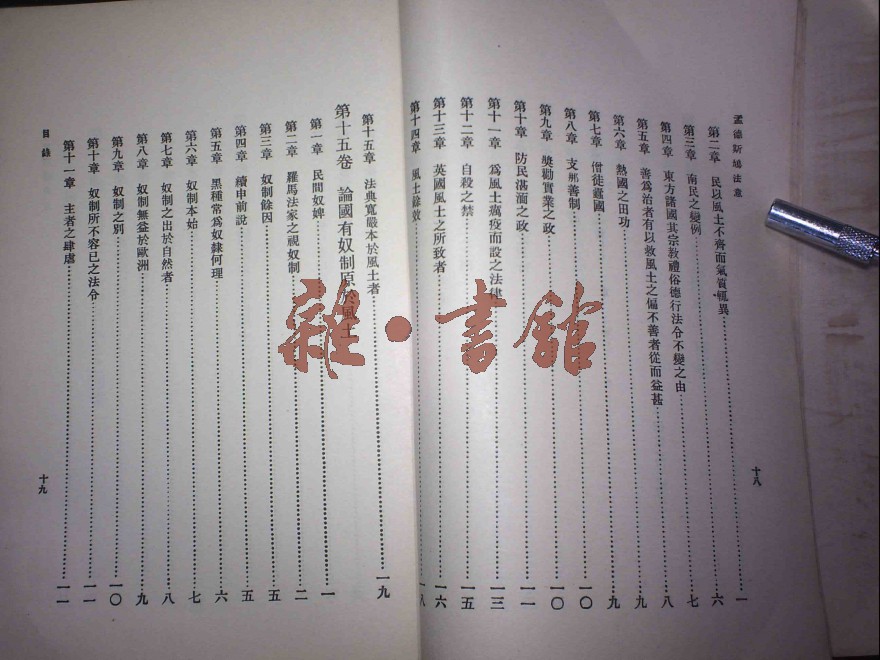 孟德斯鳩法意
十八
第二章 民以風土不齊而氣質輒異 一
第三章 南民之變例 六
第四章 東方諸國其宗教禮俗德行法令不變之由 七
第五章 善爲治者有以救風土之偏不善者從而益甚 八
第六章 熱國之田功 九
第七章 僧徒蠹國 九
第八章 支那善制 一〇
第九章 獎勸實業之政 一〇
第十章 防民湛湎之政 一一
第十一章 爲風土癘疫而設之法律 一三
第十二章 自殺之禁 一五
第十三章 英國風土之所致者 一六
第十四章 風土餘效 一八
第十五章 法典寬嚴本於風土者 一九
第十五卷 論國有奴制原於風土
第一章 民間奴婢 一
第二章 羅馬法家之視奴制 二
第三章 奴制餘因 五
第四章 續申前說 五
第五章 黑種常爲奴隸何理 六
第六章 奴制本始 七
第七章 奴制之出於自然者 八
第八章 奴制無益於歐洲 九
第九章 奴制之別 一〇
第十章 奴制所不容已之法令 一一
第十一章 主者之肆虐 一一
目錄
十九
雜·書館